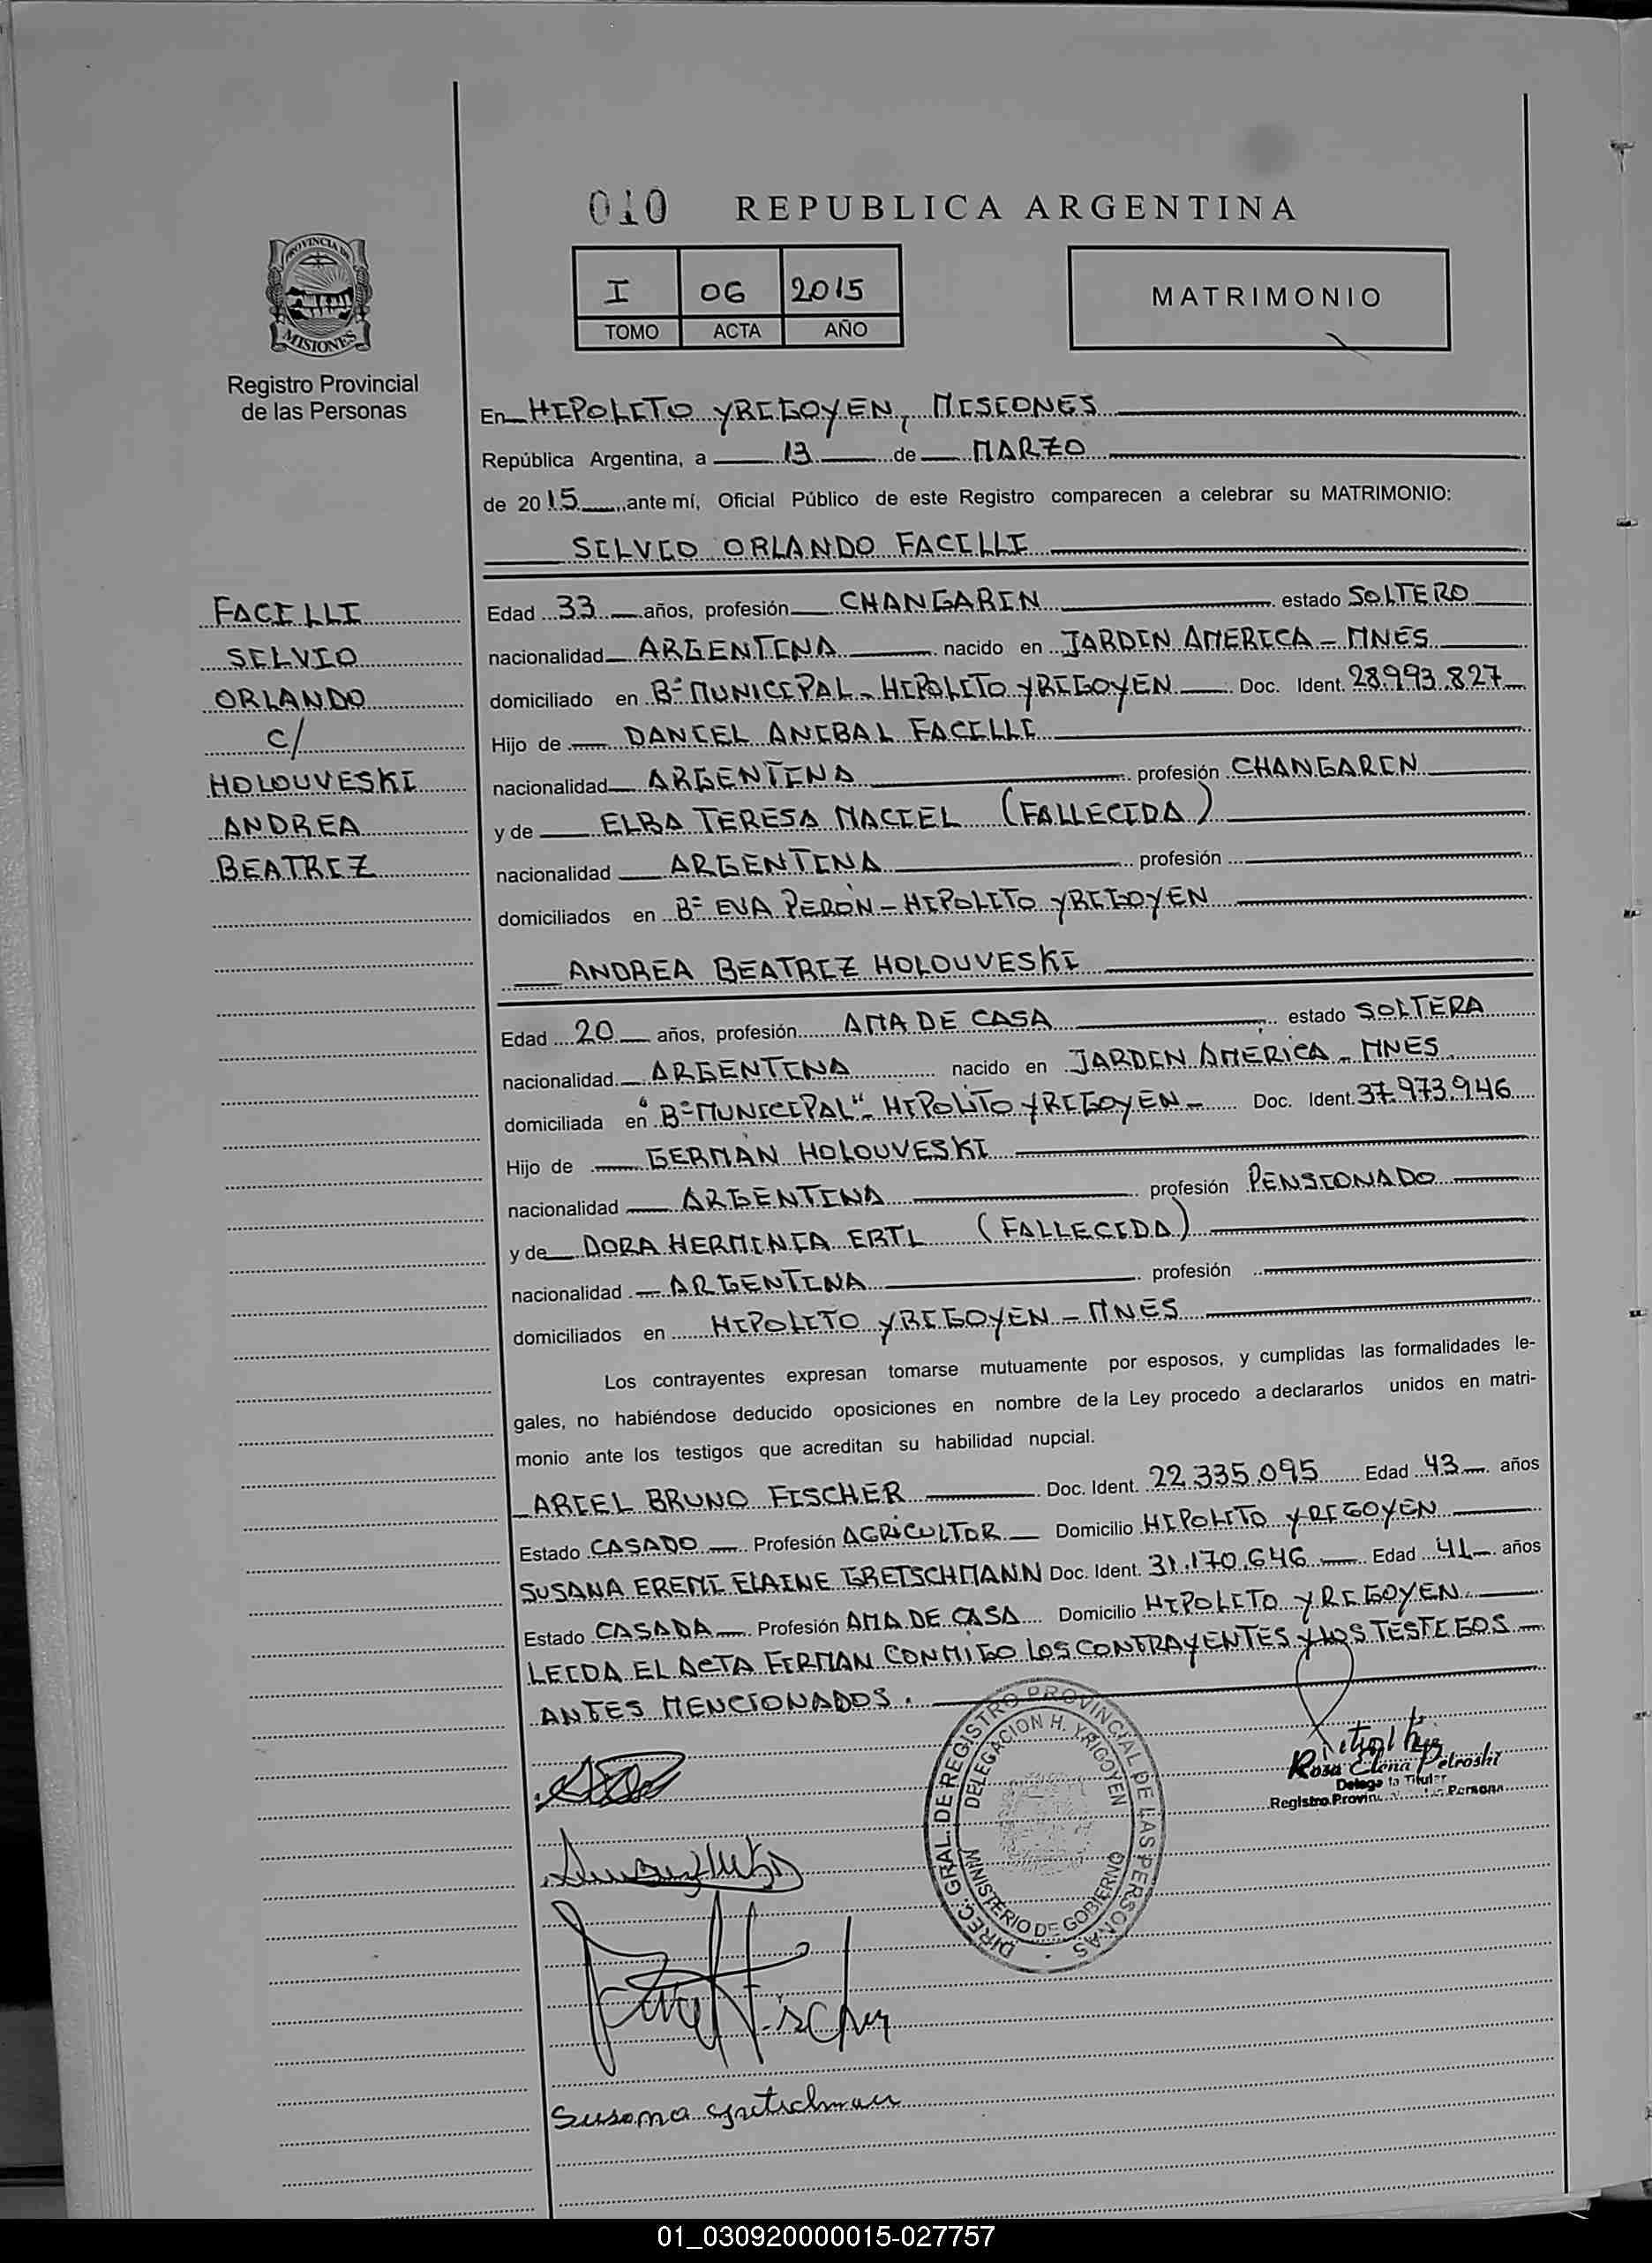 010 REPUBLICA ARGENTINA
I 06 2015
TOMO ACTA AÑO
MATRIMONIO
PROVINCIA DE
MISIONES
Registro Provincial
de las Personas
En HIPOLITO YRIGOYEN, MISIONES
República Argentina, a 13 de MARZO
de 2015 ante mí, Oficial Público de este Registro comparecen a celebrar su MATRIMONIO:
SILVIO ORLANDO FACILLI
FACILLI
SILVIO
ORLANDO
C/
HOLOUVESKI
ANDREA
BEATRIZ
Edad 33 años, profesión CHANGARIN estado SOLTERO
nacionalidad ARGENTINA nacido en JARDIN AMERICA - MNES
domiciliado en Bº MUNICIPAL - HIPOLITO YRIGOYEN Doc. Ident. 28.993.827
Hijo de DANIEL ANIBAL FACILLI
nacionalidad ARGENTINA profesión CHANGARIN
y de ELBA TERESA MACIEL (FALLECIDA)
nacionalidad ARGENTINA profesión
domiciliados en Bº EVA PERÓN - HIPOLITO YRIGOYEN
ANDREA BEATRIZ HOLOUVESKI
Edad 20 años, profesión AMA DE CASA estado SOLTERA
nacionalidad ARGENTINA nacido en JARDIN AMERICA - MNES
domiciliada en "Bº MUNICIPAL" - HIPOLITO YRIGOYEN - Doc. Ident. 37.973.946
Hijo de GERMÁN HOLOUVESKI
nacionalidad ARGENTINA profesión PENSIONADO
y de DORA HERMINIA ERTL (FALLECIDA)
nacionalidad ARGENTINA profesión
domiciliados en HIPOLITO YRIGOYEN - MNES
Los contrayentes expresan tomarse mutuamente por esposos, y cumplidas las formalidades le-
gales, no habiéndose deducido oposiciones en nombre de la Ley procedo a declararlos unidos en matri-
monio ante los testigos que acreditan su habilidad nupcial.
ARIEL BRUNO FISCHER Doc. Ident. 22.335.095 Edad 43 años
Estado CASADO Profesión AGRICULTOR Domicilio HIPOLITO YRIGOYEN
SUSANA ERENI ELAINE GRETSCHMANN Doc. Ident. 31.170.646 Edad 41 años
Estado CASADA Profesión AMA DE CASA Domicilio HIPOLITO YRIGOYEN
LEIDA EL ACTA FIRMAN CONMIGO LOS CONTRAYENTES Y LOS TESTIGOS
ANTES MENCIONADOS.
DIREC. GRAL. DE REGISTRO PROVINCIAL DE LAS PERSONAS
DELEGACION H. YRIGOYEN
MINISTERIO DE GOBIERNO
Rosa Elena Petroski
Titular
Registro
Fischer
Susana Gretschman
01_030920000015-027757